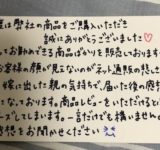 は弊社の商品をご購入いただき
誠にありがとうございました♡
お勧めできる商品ばかりを販売しており
お客様の顔が見えないがネット通販の悲し
嫁に出した親の気持ちで、届いた後の感想
なっております。商品レビューをいただけると
ズしてしまいます。一言だけでも構いません
感想をお聞かせください